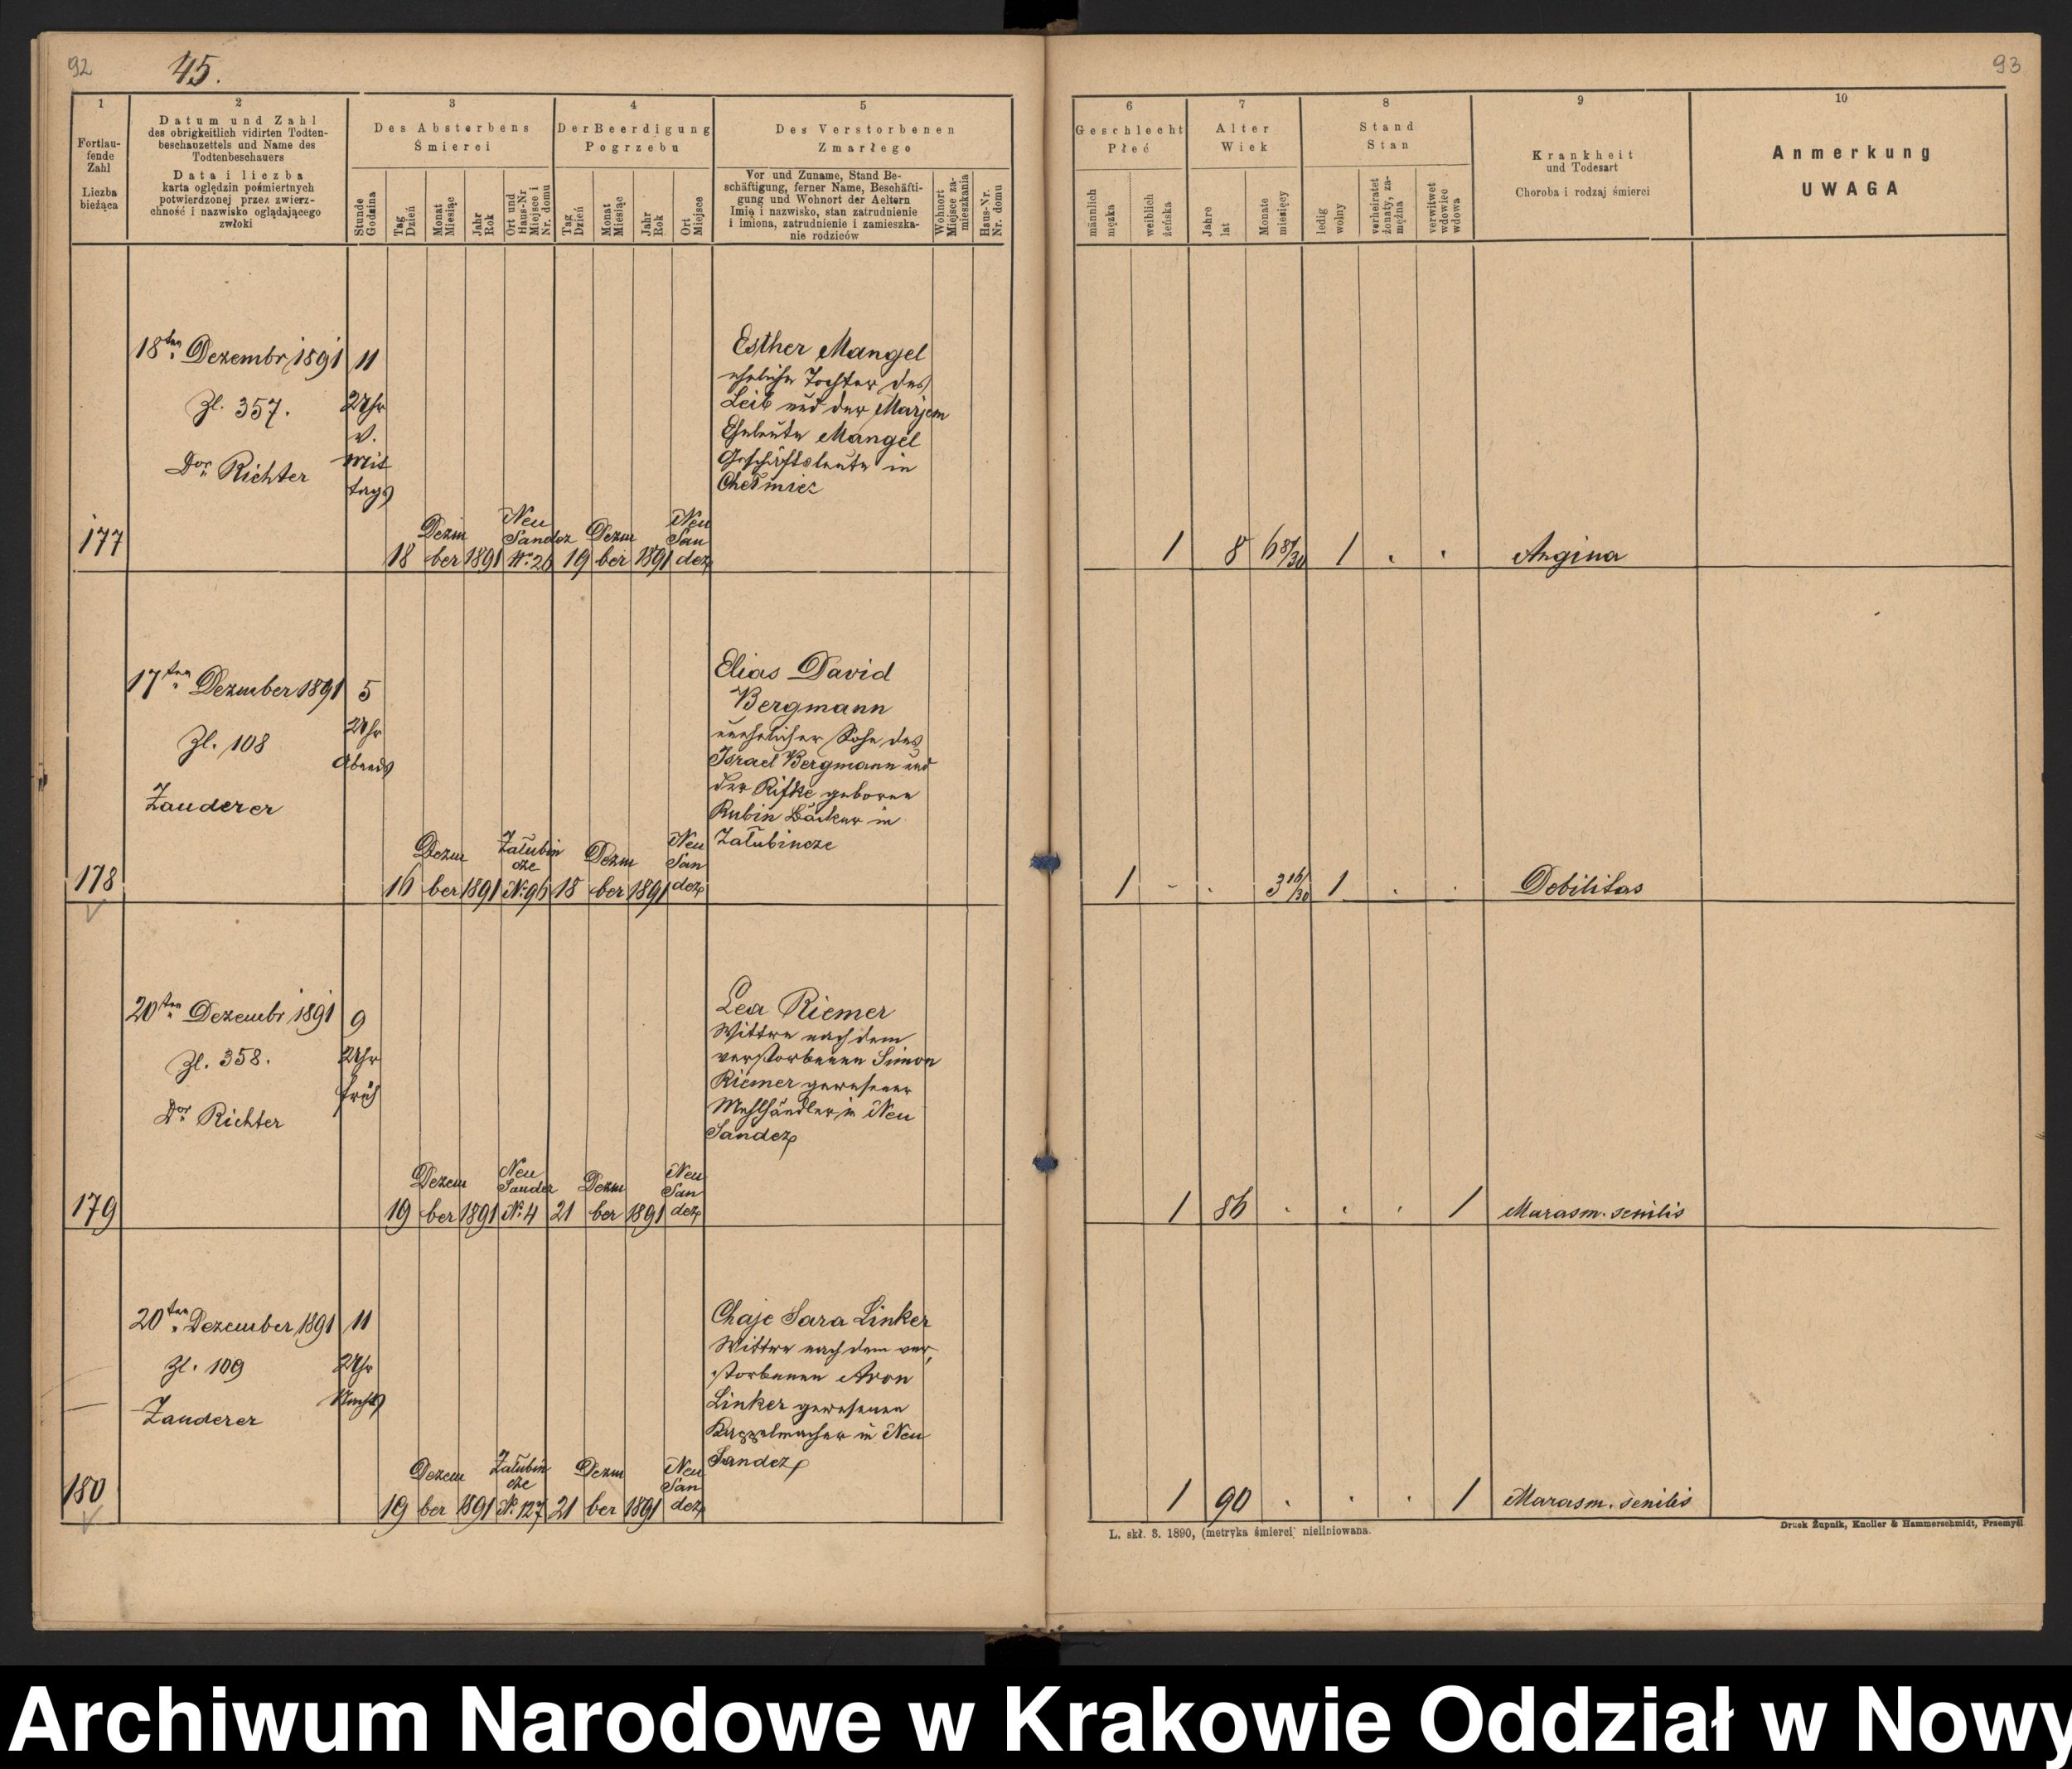 92
45.
93
1
Fortlau-
fende
Zahl
Liczba
bieżąca
2
Datum und Zahl
des obrigkeitlich vidirten Todten-
beschauzettels und Name des
Todtenbeschauers
Data i liczba
karta oględzin pośmiertnych
potwierdzonej przez zwierz-
chność i nazwisko oglądającego
zwłoki
3
Des Absterbens
Śmierci
Stunde
Godzina
Tag
Dzień
Monat
Miesiąc
Jahr
Rok
Ort und
Haus-Nr
Miejsce i
Nr. domu
4
Der Beerdigung
Pogrzebu
Tag
Dzień
Monat
Miesiąc
Jahr
Rok
Ort
Miejsce
5
Des Verstorbenen
Zmarłego
Vor und Zuname, Stand Be-
schäftigung, ferner Name, Beschäfti-
gung und Wohnort der Aeltern
Imię i nazwisko, stan zatrudnienie
i imiona, zatrudnienie i zamieszka-
nie rodziców
Wohnort
Miejsce za-
mieszkania
Haus-Nr.
Nr. domu
6
Geschlecht
Płeć
männlich
męzka
weiblich
żeńska
7
Alter
Wiek
Jahre
lat
Monate
miesięcy
8
Stand
Stan
ledig
wolny
verheiratet
żonaty, za-
mężna
verwitwet
wdowiec
wdowa
9
Krankheit
und Todesart
Choroba i rodzaj śmierci
10
Anmerkung
UWAGA
177
18ten Dezembr 1891
Zl. 357.
Dor Richter
11
Uhr
v.
Mit
tags
18
Dezm
ber
1891
Neu
Sandez
No 26
19
Dezm
ber
1891
Neu
San
dez
Esther Mangel
eheliche Tochter des
Leib und der Marjem
Eheleute Mangel
Geschäftsleute in
Chełmiec
1
8
6 8/30
1 . .
Angina
178
17ten Dezember 1891
Zl. 108
Zauderer
5
Uhr
Abends
16
Dezm
ber
1891
Załubin
cze
No 96
18
Dezm
ber
1891
Neu
San
dez
Elias David
Bergmann
unehelicher Sohn des
Israel Bergmann und
der Rifke geboren
Rubin Bäcker in
Załubincze
1 - .
3 16/30
1 . .
Debilitas
179
20ten Dezembr 1891
Zl. 358.
Dor Richter
9
Uhr
früh
19
Dezem
ber
1891
Neu
Sandez
No 4
21
Dezm
ber
1891
Neu
San
dez
Lea Riemer
Wittwe nach dem
verstorbenen Simon
Riemer gewesener
Mehlhändler in Neu
Sandez
1
86
. . .
1
Marasm. senilis
180
20ten Dezember 1891
Zl. 109
Zauderer
11
Uhr
Nachts
19
Dezem
ber
1891
Załubin
cze
No 127
21
Dezm
ber
1891
Neu
San
dez
Chaje Sara Linker
Wittwe nach dem ver,
storbenen Aron
Linker gewesenen
Kappelmacher in Neu
Sandez
1
90
. . .
1
Marasm. senilis
L. skł. 3. 1890, (metryka śmierci) nieliniowana.
Druck Żupnik, Knoller & Hammerschmidt, Przemyśl
Archiwum Narodowe w Krakowie Oddział w Nowy